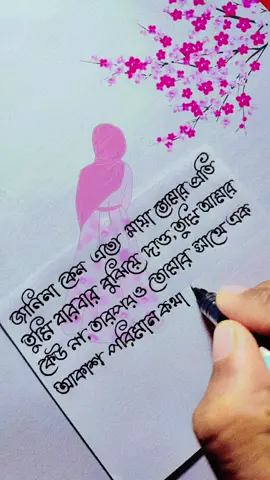 জানিনা কেন এতো মায়া তোমার প্রতি
তুমি বারবার বুঝিয়ে দাও, তুমি আমার
কেউ না তারপরও তোমার সাথে এক
আকাশ পরিমান কথা।